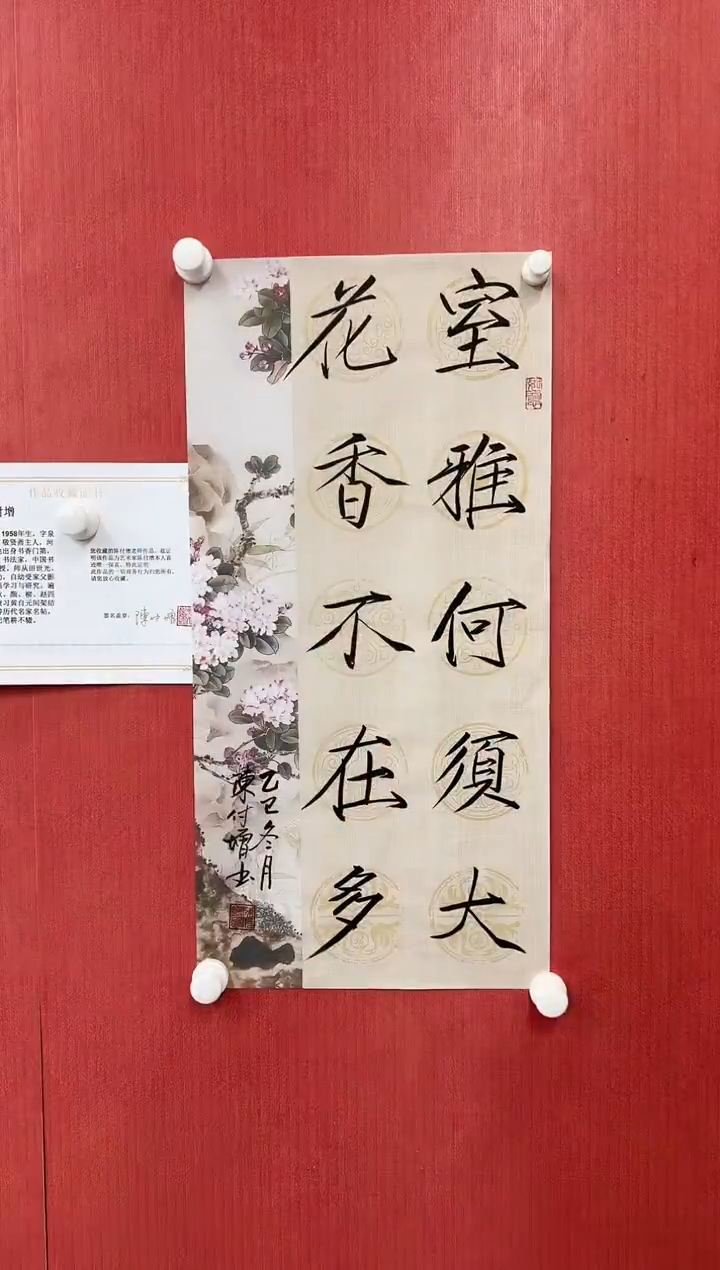 室雅何須大
花香不在多
乙巳冬月
陳付增書
作品收藏证书
付增
1958年生，字泉
敬贤斋主人，河
出身书香门第，
书法家，中国书
授，师从田世光，
自幼受家父影
学习与研究，遍
颜、柳、赵四
习黄自元间架结
历代名家名帖，
笔耕不辍。
您收藏的陈付增老师作品，兹证
明该作品为艺术家陈付增本人喜
此作品的一切商务行为归您所有，
请您放心收藏。
签名盖章：
陳付增